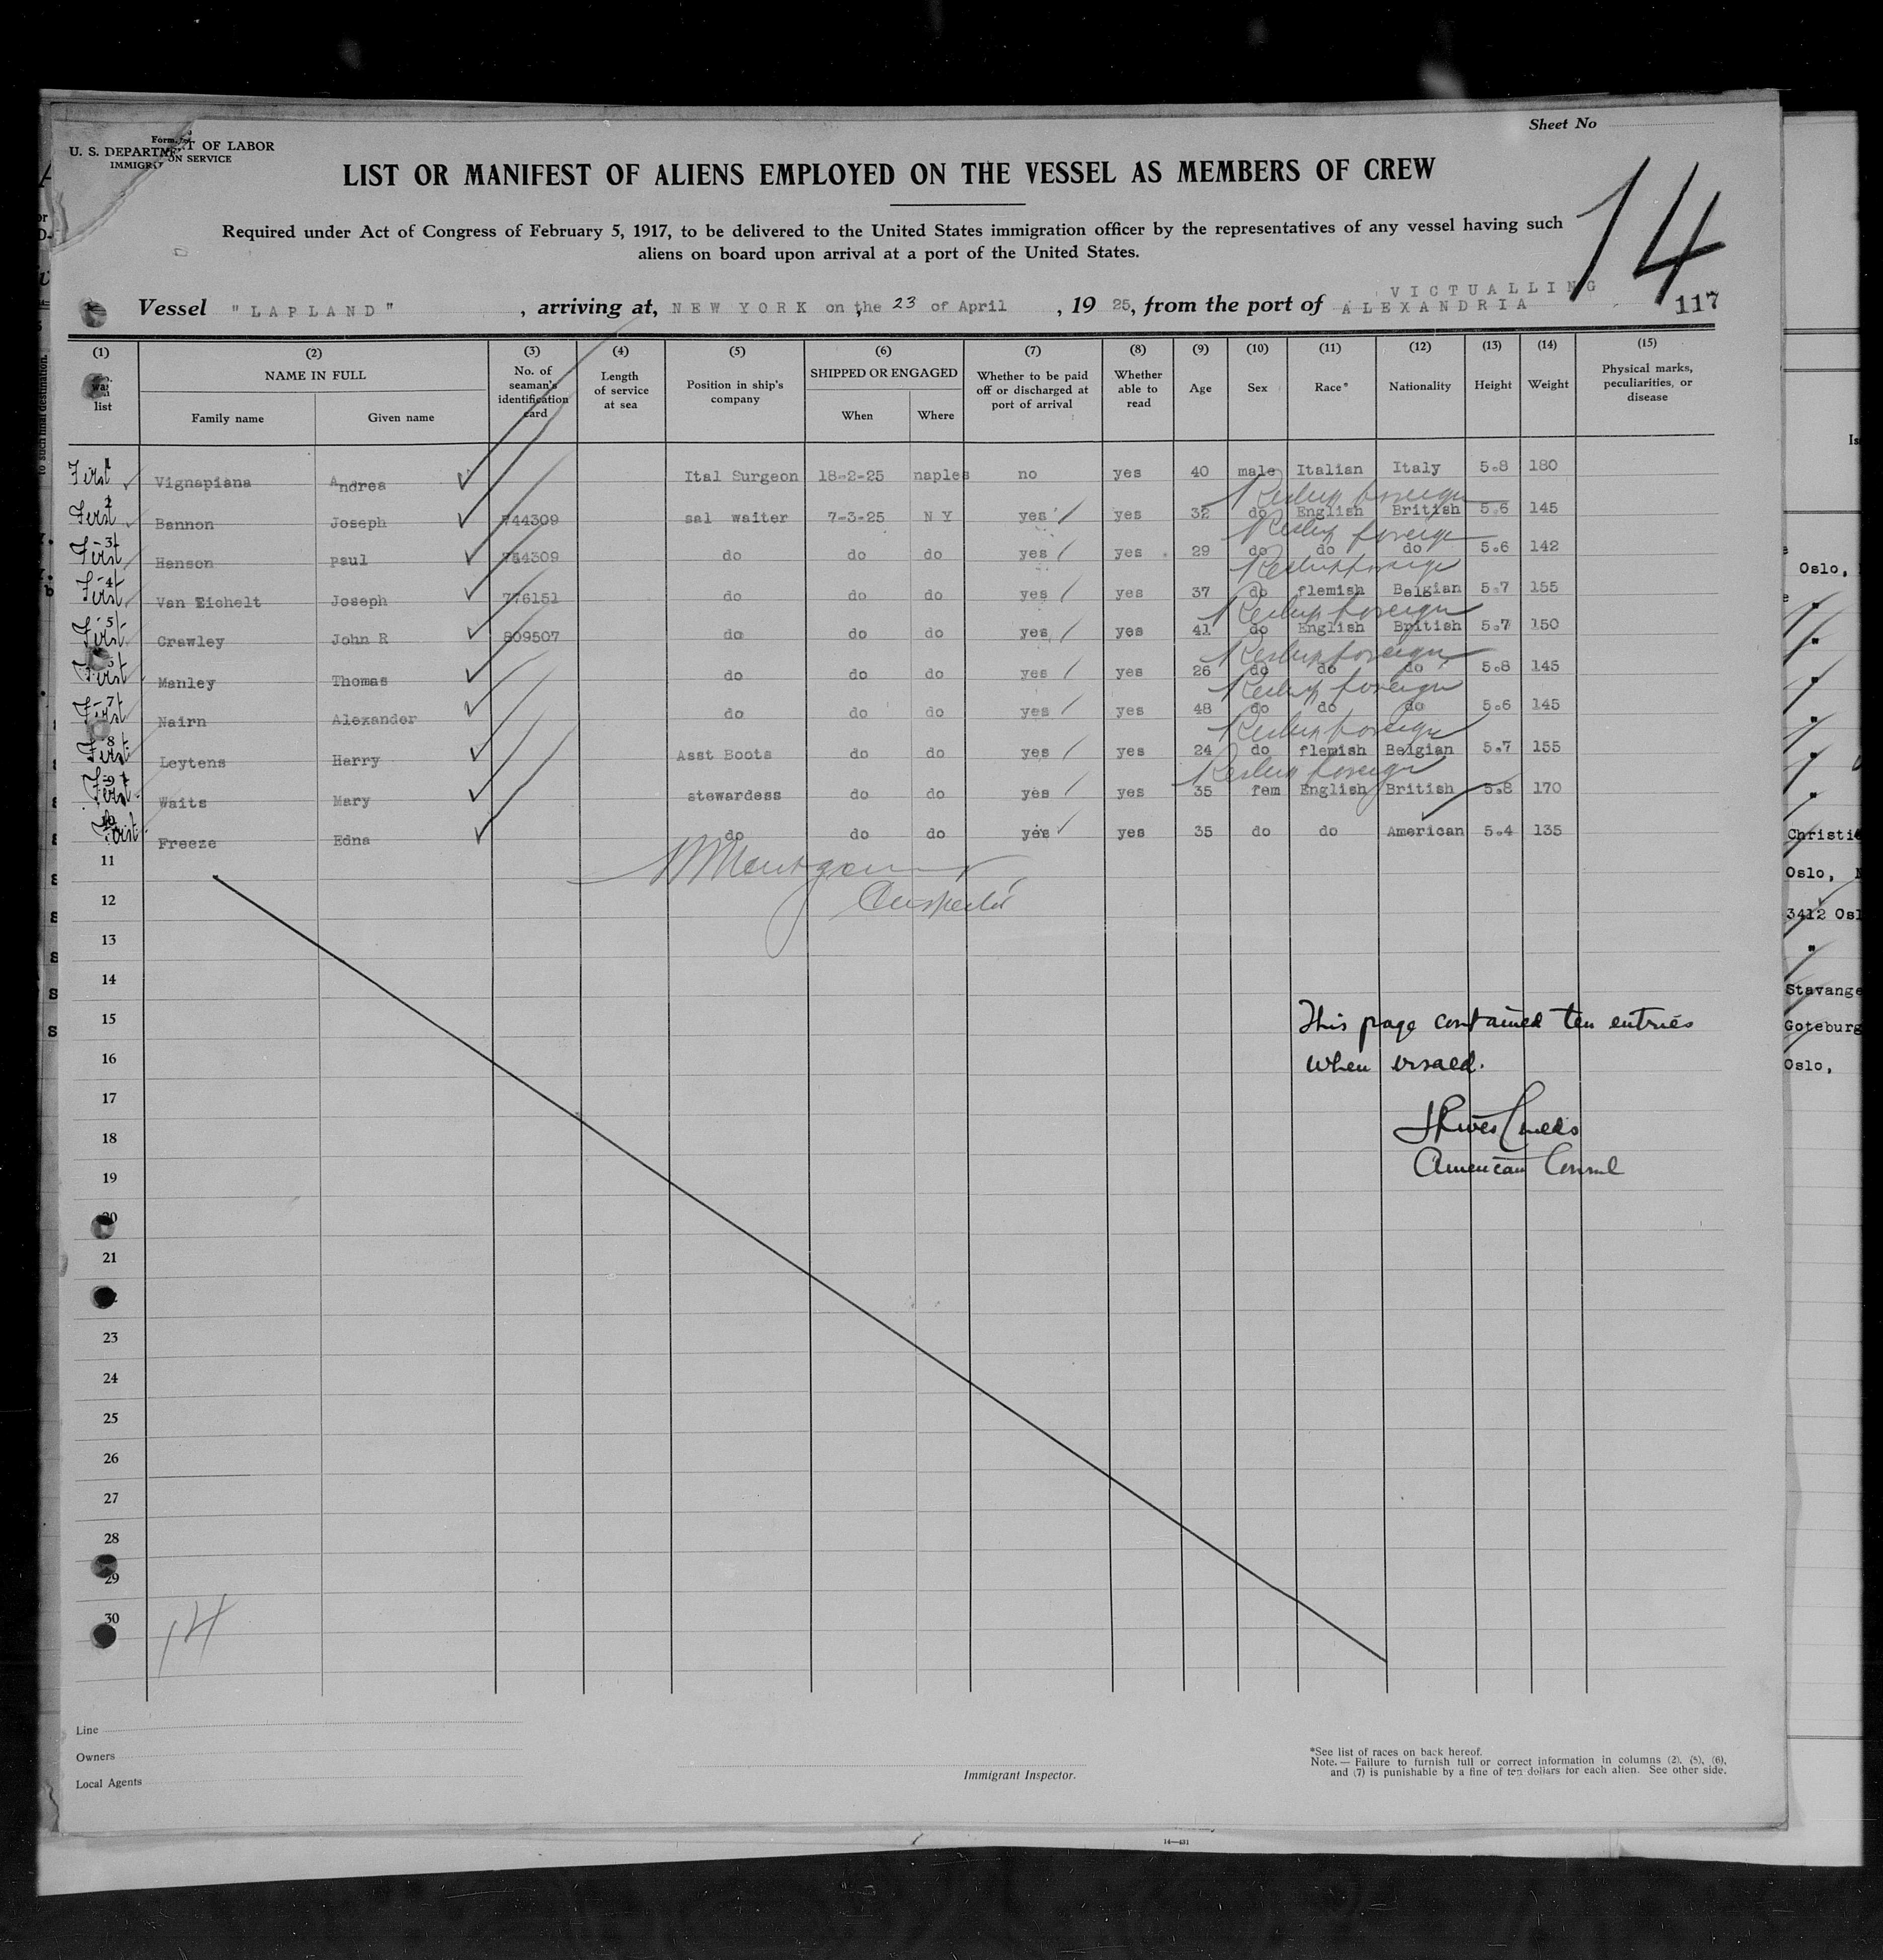 Sheet No
U. S. DEPARTMENT OF LABOR
IMMIGRATION SERVICE
LIST OR MANIFEST OF ALIENS EMPLOYED ON THE VESSEL AS MEMBERS OF CREW
14
Required under Act of Congress of February 5, 1917, to be delivered to the United States immigration officer by the representatives of any vessel having such
aliens on board upon arrival at a port of the United States.
VICTUALLING
Vessel "LAPLAND", arriving at, NEW YORK on the 23 of April, 1925, from the port of ALEXANDRIA 117
(1) (2) (3) (4) (5) (6) (7) (8) (9) (10) (11) (12) (13) (14) (15)
list NAME IN FULL Family name Given name No. of seaman's identification card Length of service at sea Position in ship's company SHIPPED OR ENGAGED When Where Whether to be paid off or discharged at port of arrival Whether able to read Age Sex Race* Nationality Height Weight Physical marks, peculiarities, or disease
First Vignapiana Andrea Ital Surgeon 18-2-25 naples no yes 40 male Italian Italy 5.8 180
First 2 Bannon Joseph 744309 sal waiter 7-3-25 N Y yes yes 32 do English British 5.6 145
First 3 Hanson paul do do do yes yes 29 do do do 5.6 142
First 4 Van Eichelt Joseph 776151 do do do yes yes 37 do flemish Belgian 5.7 155
First 5 Crawley John R 809507 do do do yes yes 41 do English British 5.7 150
First Manley Thomas do do do yes yes 26 do do do 5.8 145
First 7 Nairn Alexander do do do yes yes 48 do do do 5.6 145
First 8 Leytens Harry Asst Boots do do yes yes 24 do flemish Belgian 5.7 155
First 9 Waits Mary stewardess do do yes yes 35 fem English British 5.8 170
First 10 Freeze Edna do do do yes yes 35 do do American 5.4 135
11
Inspector
12
13
14
15 This page contained ten entries
16 when visaed.
17
18
19 American Consul
20
21
23
24
25
26
27
28
29
30
14
Line
Owners
Local Agents
Immigrant Inspector.
*See list of races on back hereof.
Note.— Failure to furnish full or correct information in columns (2), (5), (6),
and (7) is punishable by a fine of ten dollars for each alien. See other side.
14—431
Oslo,
Oslo,
3412
Oslo,